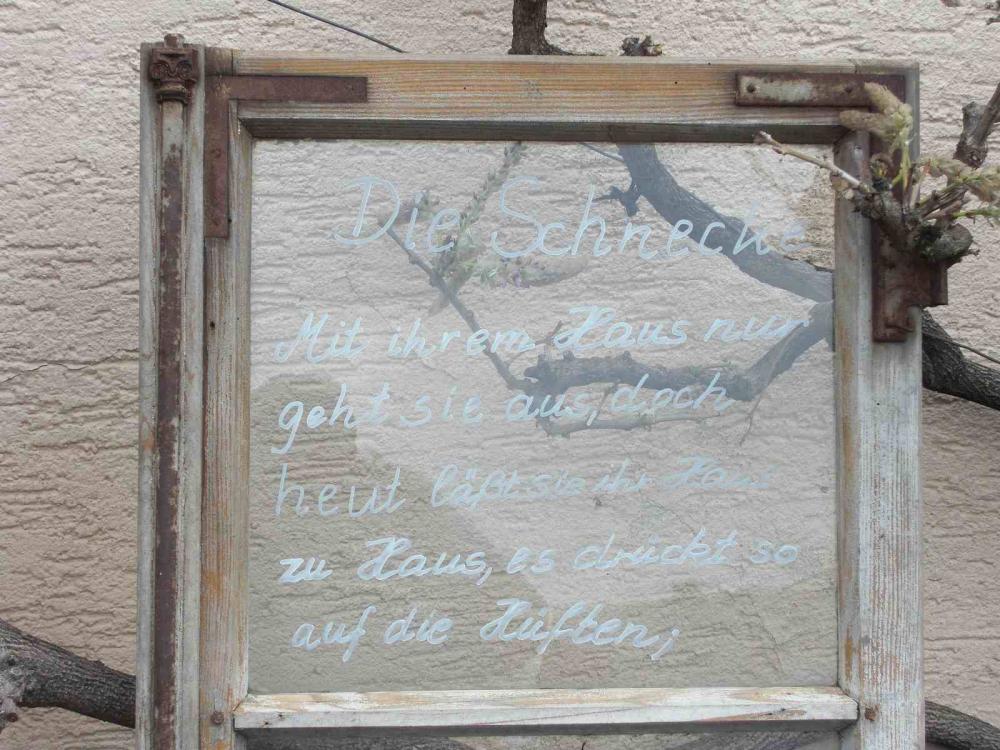 Die Schnecke
Mit ihrem Haus nur
geht sie aus, doch
heut läßt sie ihr Haus
zu Haus, es drückt so
auf die Hüften;